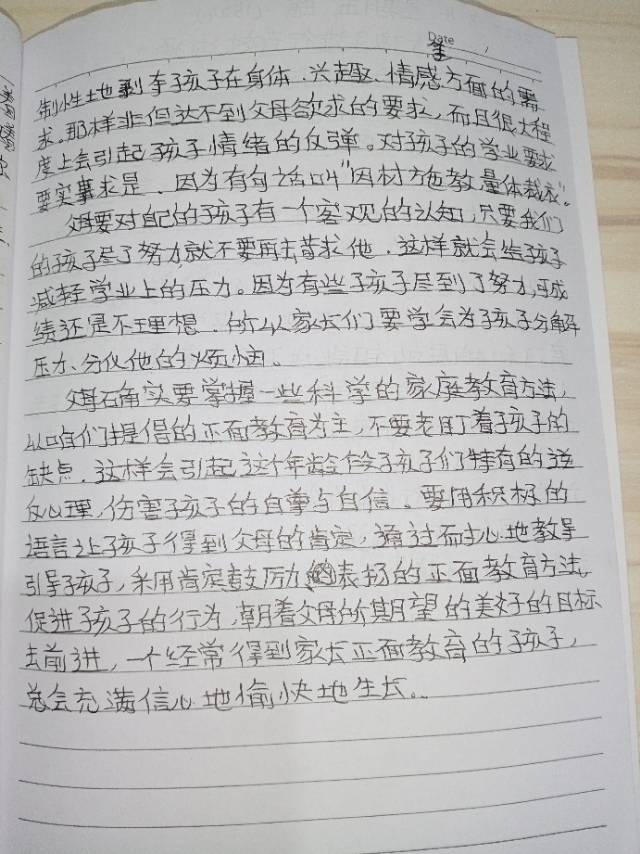 Date
制性土地剥夺孩子在身体、兴趣、情感方面的需
求。那样非但达不到父母欲求的要求，而且很大程
度上会引起孩子情绪的反弹。对孩子的学业要求
要实事求是，因为有句话叫“因材施教量体裁衣”。
父母要对自己的孩子有一个客观的认知，只要我们
的孩子尽了努力就不要再去苛求他，这样就会给孩子
减轻学业上的压力。因为有些孩子尽到了努力，可成
绩还是不理想，所以家长们要学会为孩子分解
压力、分化他的烦恼。
父母确实要掌握一些科学的家庭教育方法，
以咱们提倡的正面教育为主，不要老盯着孩子的
缺点，这样会引起这个年龄段孩子们特有的逆
反心理，伤害孩子的自尊与自信。要用积极的
语言让孩子得到父母的肯定，通过耐心地教导
引导孩子，采用肯定鼓励表扬的正面教育方法，
促进孩子的行为，朝着父母所期望的美好的目标
去前进，一个经常得到家长正面教育的孩子，
总会充满信心地愉快地生长。